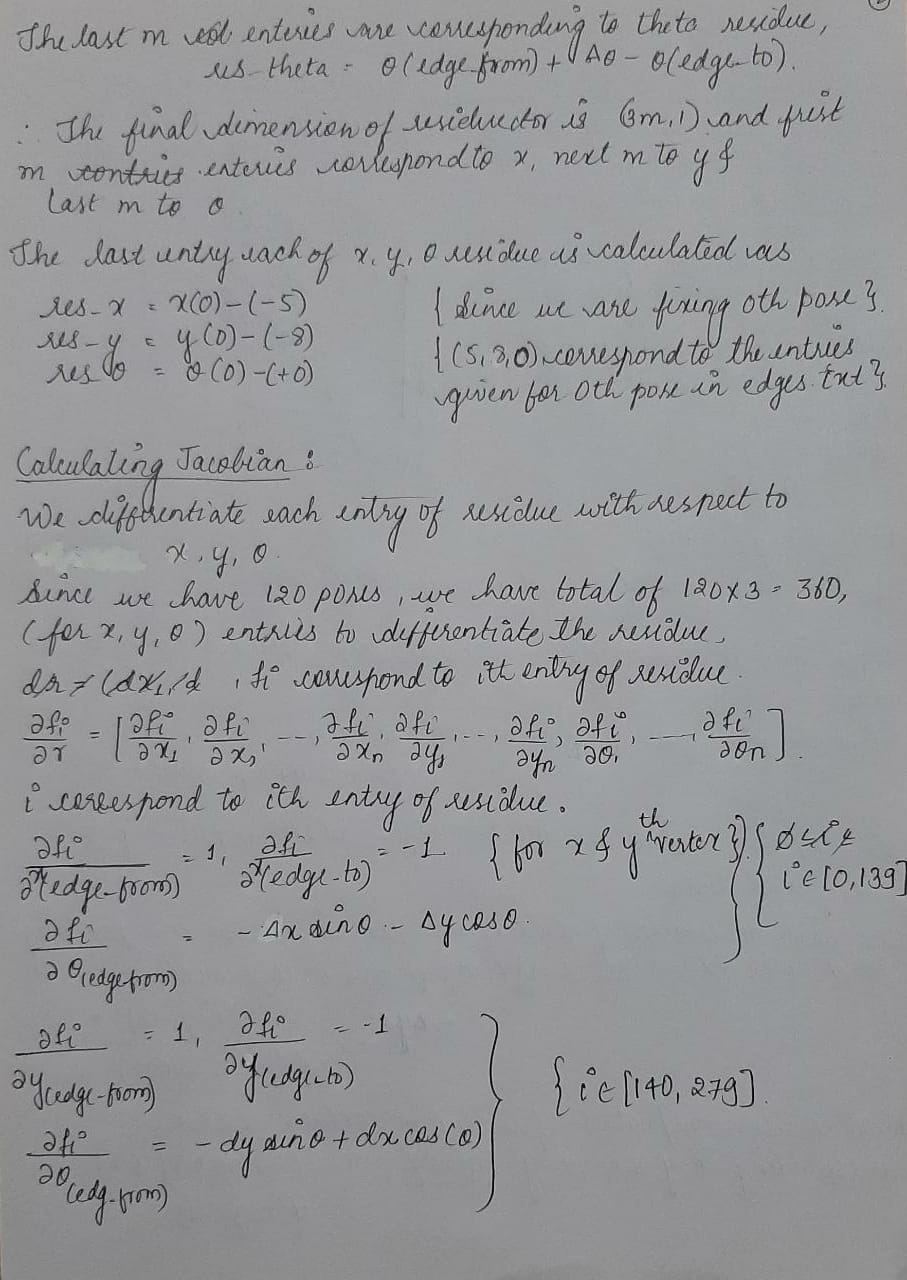 The last m enteries are corresponding to theta residue,
res-theta = θ(edge-from) + Δθ - θ(edge-to).
∴ The final dimension of is (3m,1) and first
m enteries correspond to x, next m to y &
last m to θ
The last entry each of x, y, θ residue is calculated as
res-x = x(0)-(-5) { Since we are fixing 0th pose }
res-y = y(0)-(-8) { (5,8,0) correspond to the entries
res θ = θ(0)-(+0) given for 0th pose in edges.txt }
Calculating Jacobian :
We differentiate each entry of residue with respect to
x, y, θ.
Since we have 120 poses, we have total of 120x3 = 360,
(for x, y, θ) entries to differentiate the residue,
fi correspond to ith entry of residue.
∂fi/∂r = [∂fi/∂x1, ∂fi/∂x2, ---, ∂fi/∂xn, ∂fi/∂y1, ---, ∂fi/∂yn, ∂fi/∂θ1, ---, ∂fi/∂θn].
i correspond to ith entry of residue.
∂fi/∂x(edge-from) = 1, ∂fi/∂x(edge-to) = -1 { for x & yth vertex } i ∈ [0,139]
∂fi/∂θ(edge from) = - Δx sinθ - Δy cosθ.
∂fi/∂y(edge-from) = 1, ∂fi/∂y(edge-to) = -1 { i ∈ [140, 279].
∂fi/∂θ(edg-from) = - dy sinθ + dx cos(θ)